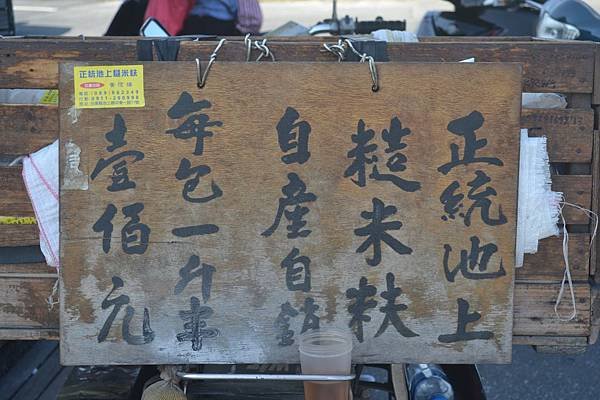 正統池上
糙米麩
自産自銷
每包一斤半
壹佰元
正統池上糙米麩